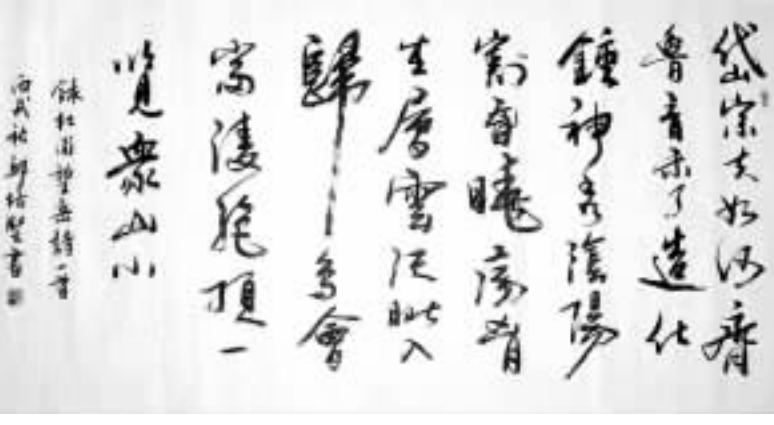 岱宗夫如何齊
魯青未了造化
鍾神秀陰陽
割昏曉蕩胷
生層雲决眦入
歸鳥會
當淩絕頂一
覽衆山小
錄杜甫望岳詩一首
丙戌秋 書